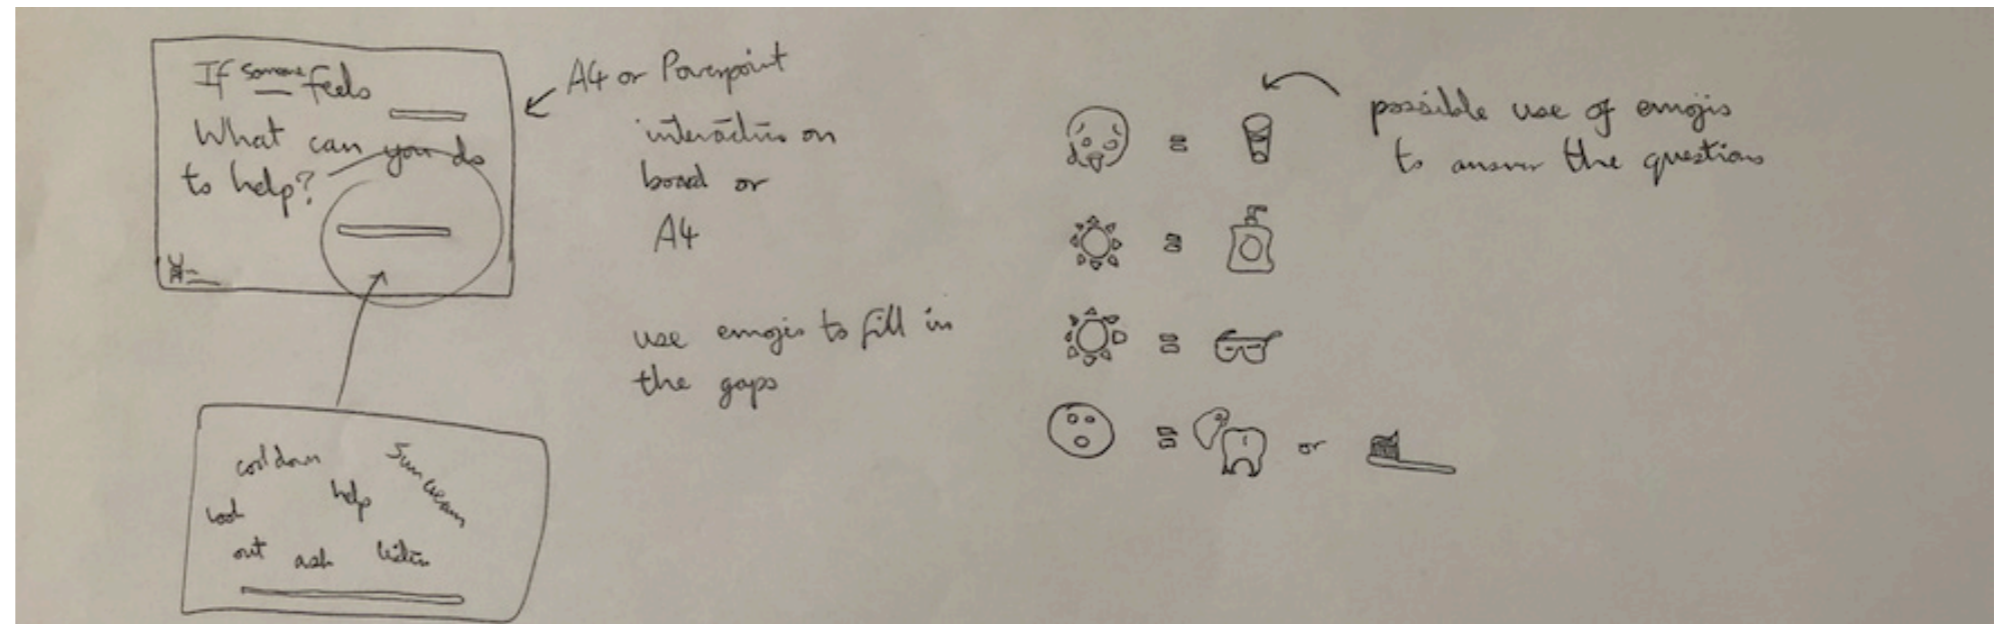 If someone feels
What can you do
to help?
A4 or Powerpoint
interactive on
board or
A4
use emojis to fill in
the gaps
cool down
Sun cream
help
look
out
ask
listen
possible use of emojis
to answer the questions
=
=
=
=
or